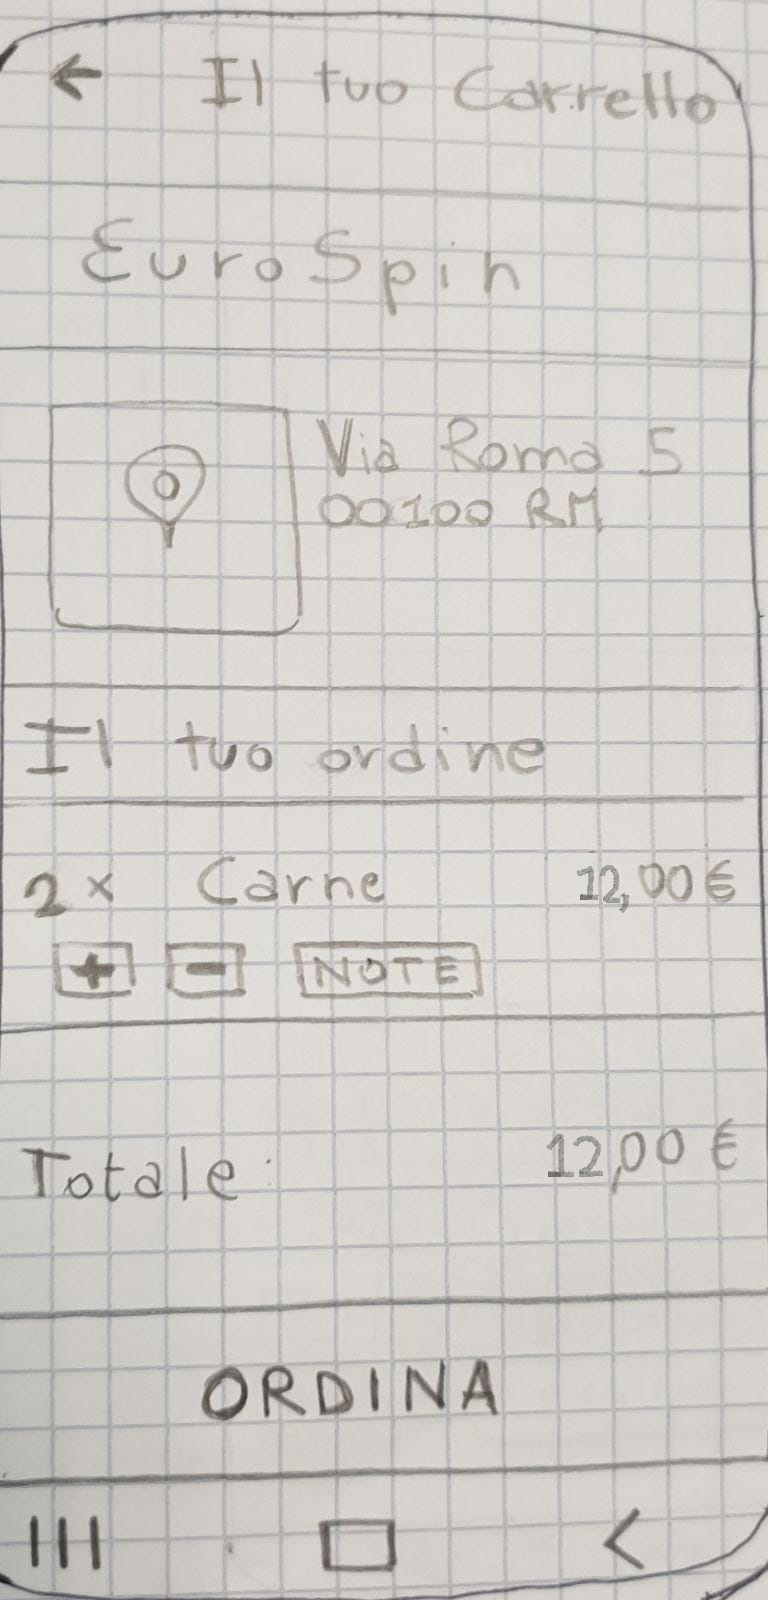 ← Il tuo Carrello
EuroSpin
Via Roma 5
00100 RM
Il tuo ordine
2x Carne 12,00€
+ - NOTE
Totale: 12,00 €
ORDINA